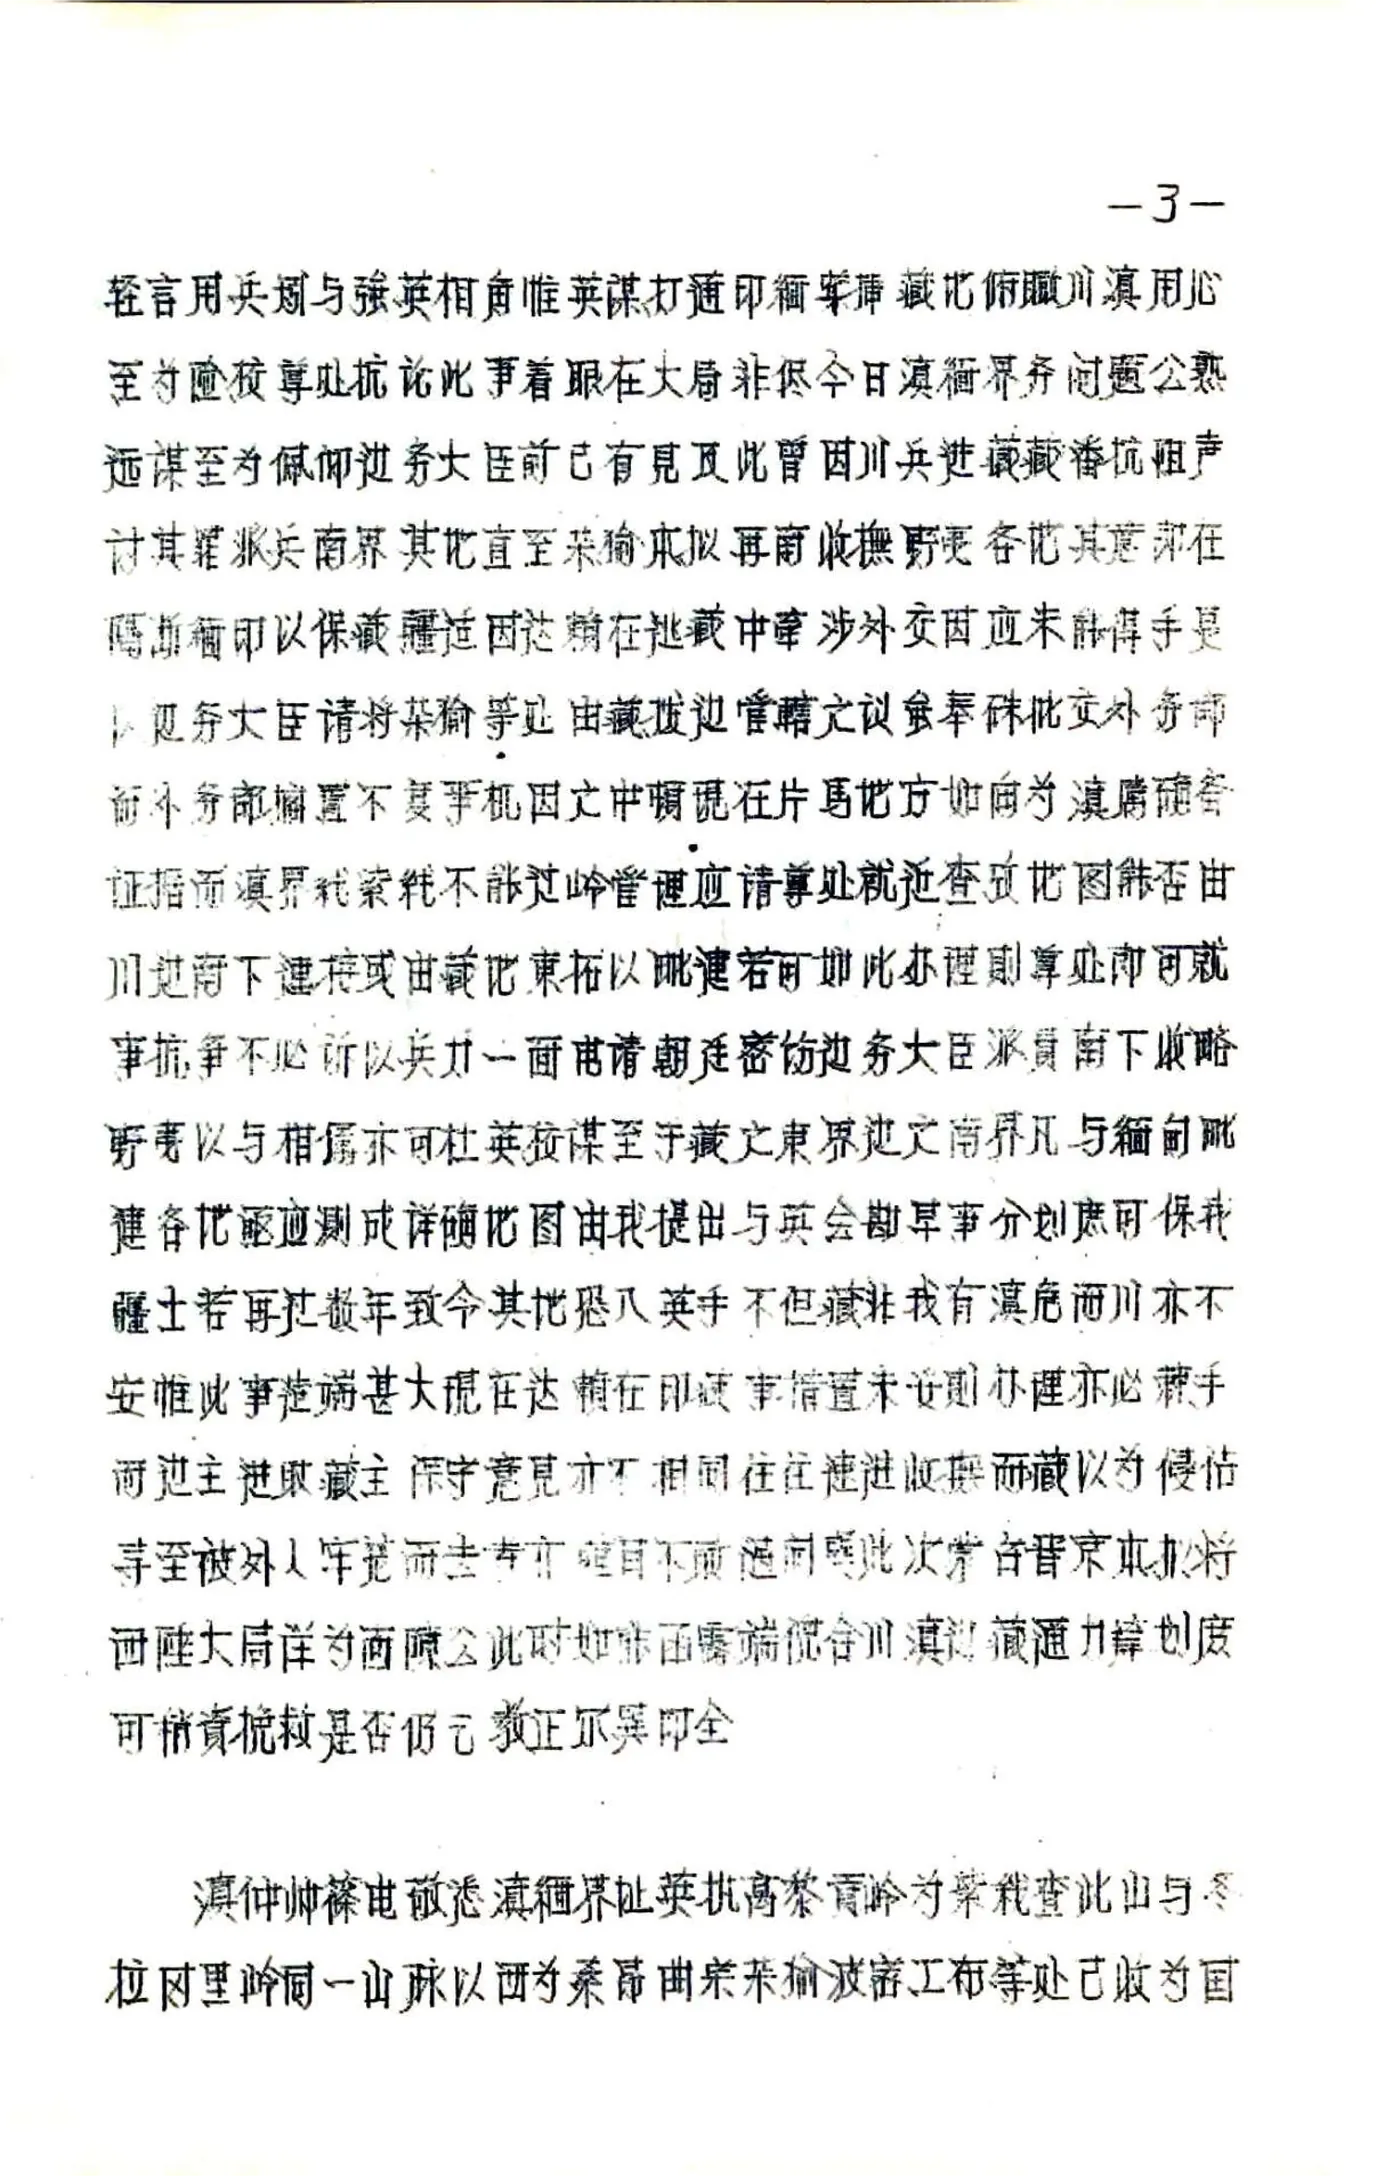 —3—
轻言用兵剏与强英相角惟英谋打通印缅掌押藏地俯瞰川滇用心
至为险狡尊处抗论此事着眼在大局非仅今日滇缅界务问题公熟
远谋至为佩仰边务大臣前已有見及此曾因川兵进藏藏番抗阻声
讨其罪派兵南界其地直至杂瑜本拟再南收抚野夷各地其意即在
隔断缅印以保藏疆适因达赖在逃藏中牵涉外交因应未能得手是
以边务大臣请将杂瑜等处由藏拨边管辖之议虽奉硃批交外务部
而外务部搁置不复事机因之中顿現在片馬地方如向为滇属确答
证据而滇界线索綫不能过岭管理应请尊处就近查攷地图能否由
川边南下建葙或由藏地東拓以毗連若可如此办理則尊处即可就
事抗争不必诉以兵力一面电请朝廷密饬边务大臣派員南下收略
野夷以与相属亦可杜英狡谋至于藏之東界边之南界凡与缅甸毗
連各地亟应测成详确地图由我提出与英会勘早事分划庶可保我
疆土若再过数年致令其地恐入英手不但藏非我有滇危而川亦不
安惟此事造端甚大現在达赖在印藏事措置未妥則办理亦必棘手
而边主进取藏主保守意見亦不相同往往边进收撫而藏以为侵佔
寻至被外人牢笼而去专亦 自不顾 同 此次掌台晋京本拟将
西陲大局详为面陳公此时如能函露端倪合川滇边藏通力筹划度
可稍資挽救是否仍乞教正尔巽叩全
滇仲帅篠电敬悉滇缅界址英执高黎貢岭为案我查此山与冬
拉冈里岭同一山脉以西为桑昂曲宗杂瑜波密工布等处已收为国